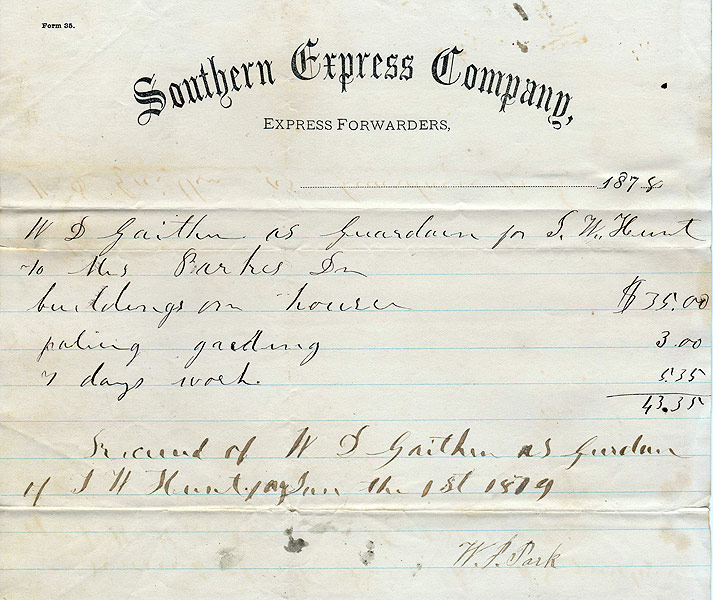 Form 35.
Southern Express Company,
EXPRESS FORWARDERS,
1878
W D Gaither as Guardain for J. W. Hunt
to Mrs Parkes Dr
buildings on houser $35.00
paling garding 3.00
7 days work. 5.35
43.35
Received of W D Gaither as Gurdan
of J W Hunt Jan the 1st 1879
W. P. Park